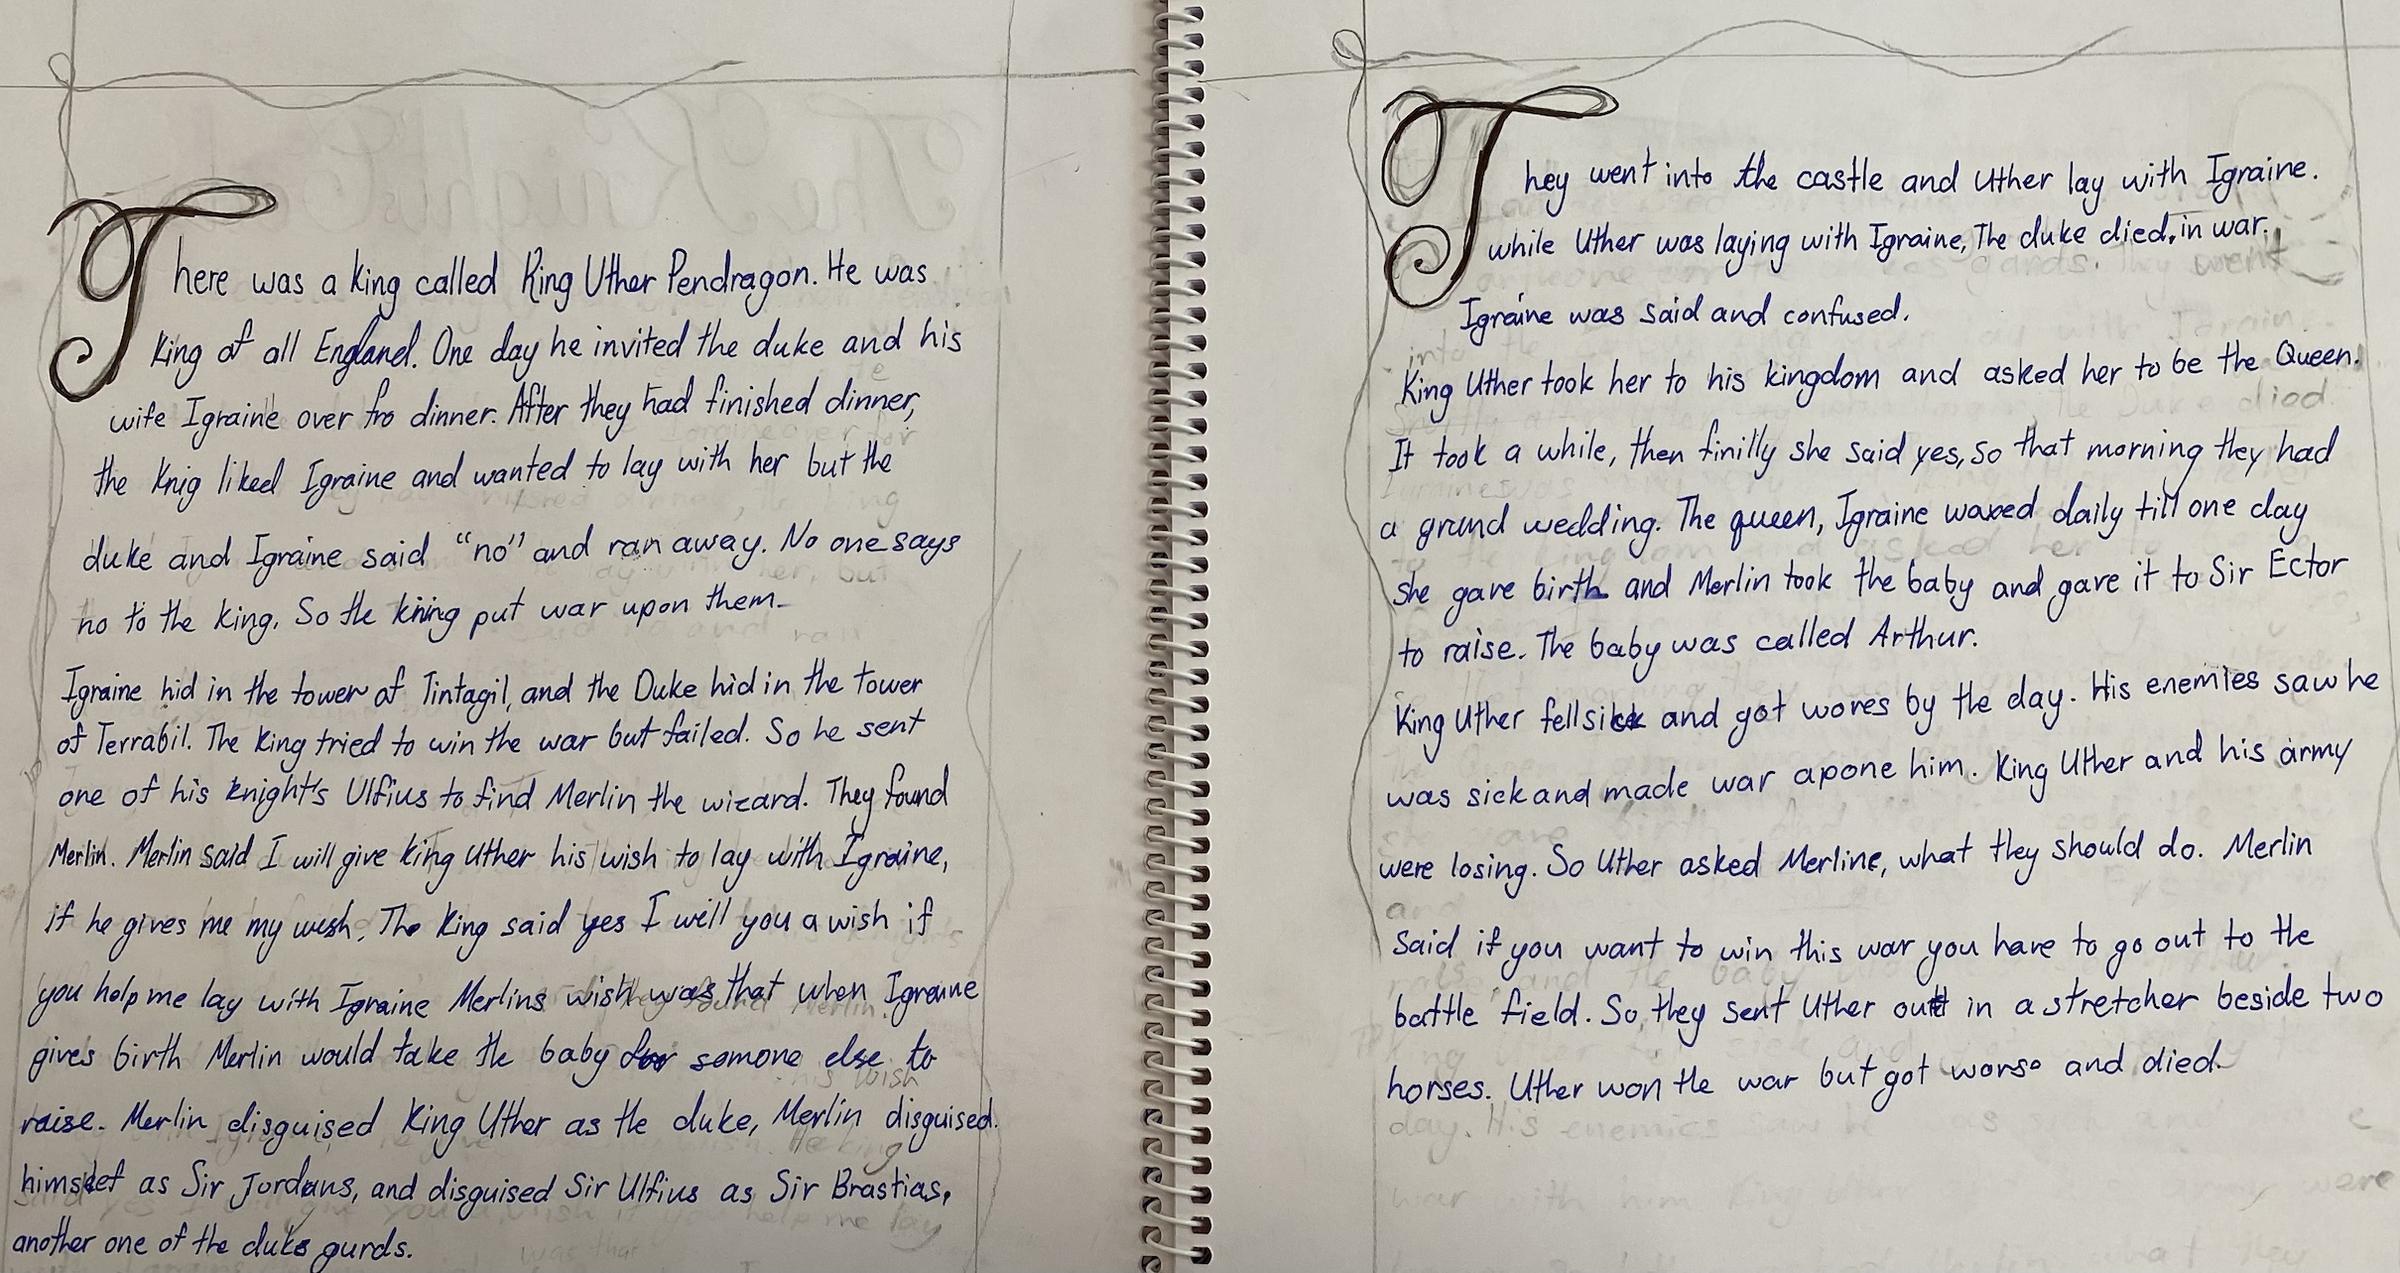 There was a king called King Uther Pendragon. He was
King of all England. One day he invited the duke and his
wife Igraine over fro dinner. After they had finished dinner,
the Knig liked Igraine and wanted to lay with her but the
duke and Igraine said "no" and ran away. No one says
no to the king. So the kning put war upon them.
Igraine hid in the tower of Tintagil, and the Duke hid in the tower
of Terrabil. The King tried to win the war but failed. So he sent
one of his knight's Ulfius to find Merlin the wizard. They found
Merlin. Merlin said I will give King Uther his wish to lay with Igraine,
if he gives me my wish. The King said yes I will you a wish if
you help me lay with Igraine Merlins wish was that when Igraine
gives birth Merlin would take the baby for somone else to
raise. Merlin disguised King Uther as the duke, Merlin disguised.
himself as Sir Jordans, and disguised Sir Ulfius as Sir Brastias,
another one of the duks gurds.
They went into the castle and Uther lay with Igraine.
while Uther was laying with Igraine, The duke died, in war.
Igraine was said and confused.
King Uther took her to his kingdom and asked her to be the Queen.
It took a while, then finilly she said yes, so that morning they had
a grund wedding. The queen, Igraine waxed daily till one day
she gave birth and Merlin took the baby and gave it to Sir Ector
to raise. The baby was called Arthur.
King Uther fell sick and got wores by the day. His enemies saw he
was sick and made war apone him. King Uther and his army
were losing. So Uther asked Merline, what they should do. Merlin
Said if you want to win this war you have to go out to the
battle field. So, they sent Uther out in a stretcher beside two
horses. Uther won the war but got worse and died.